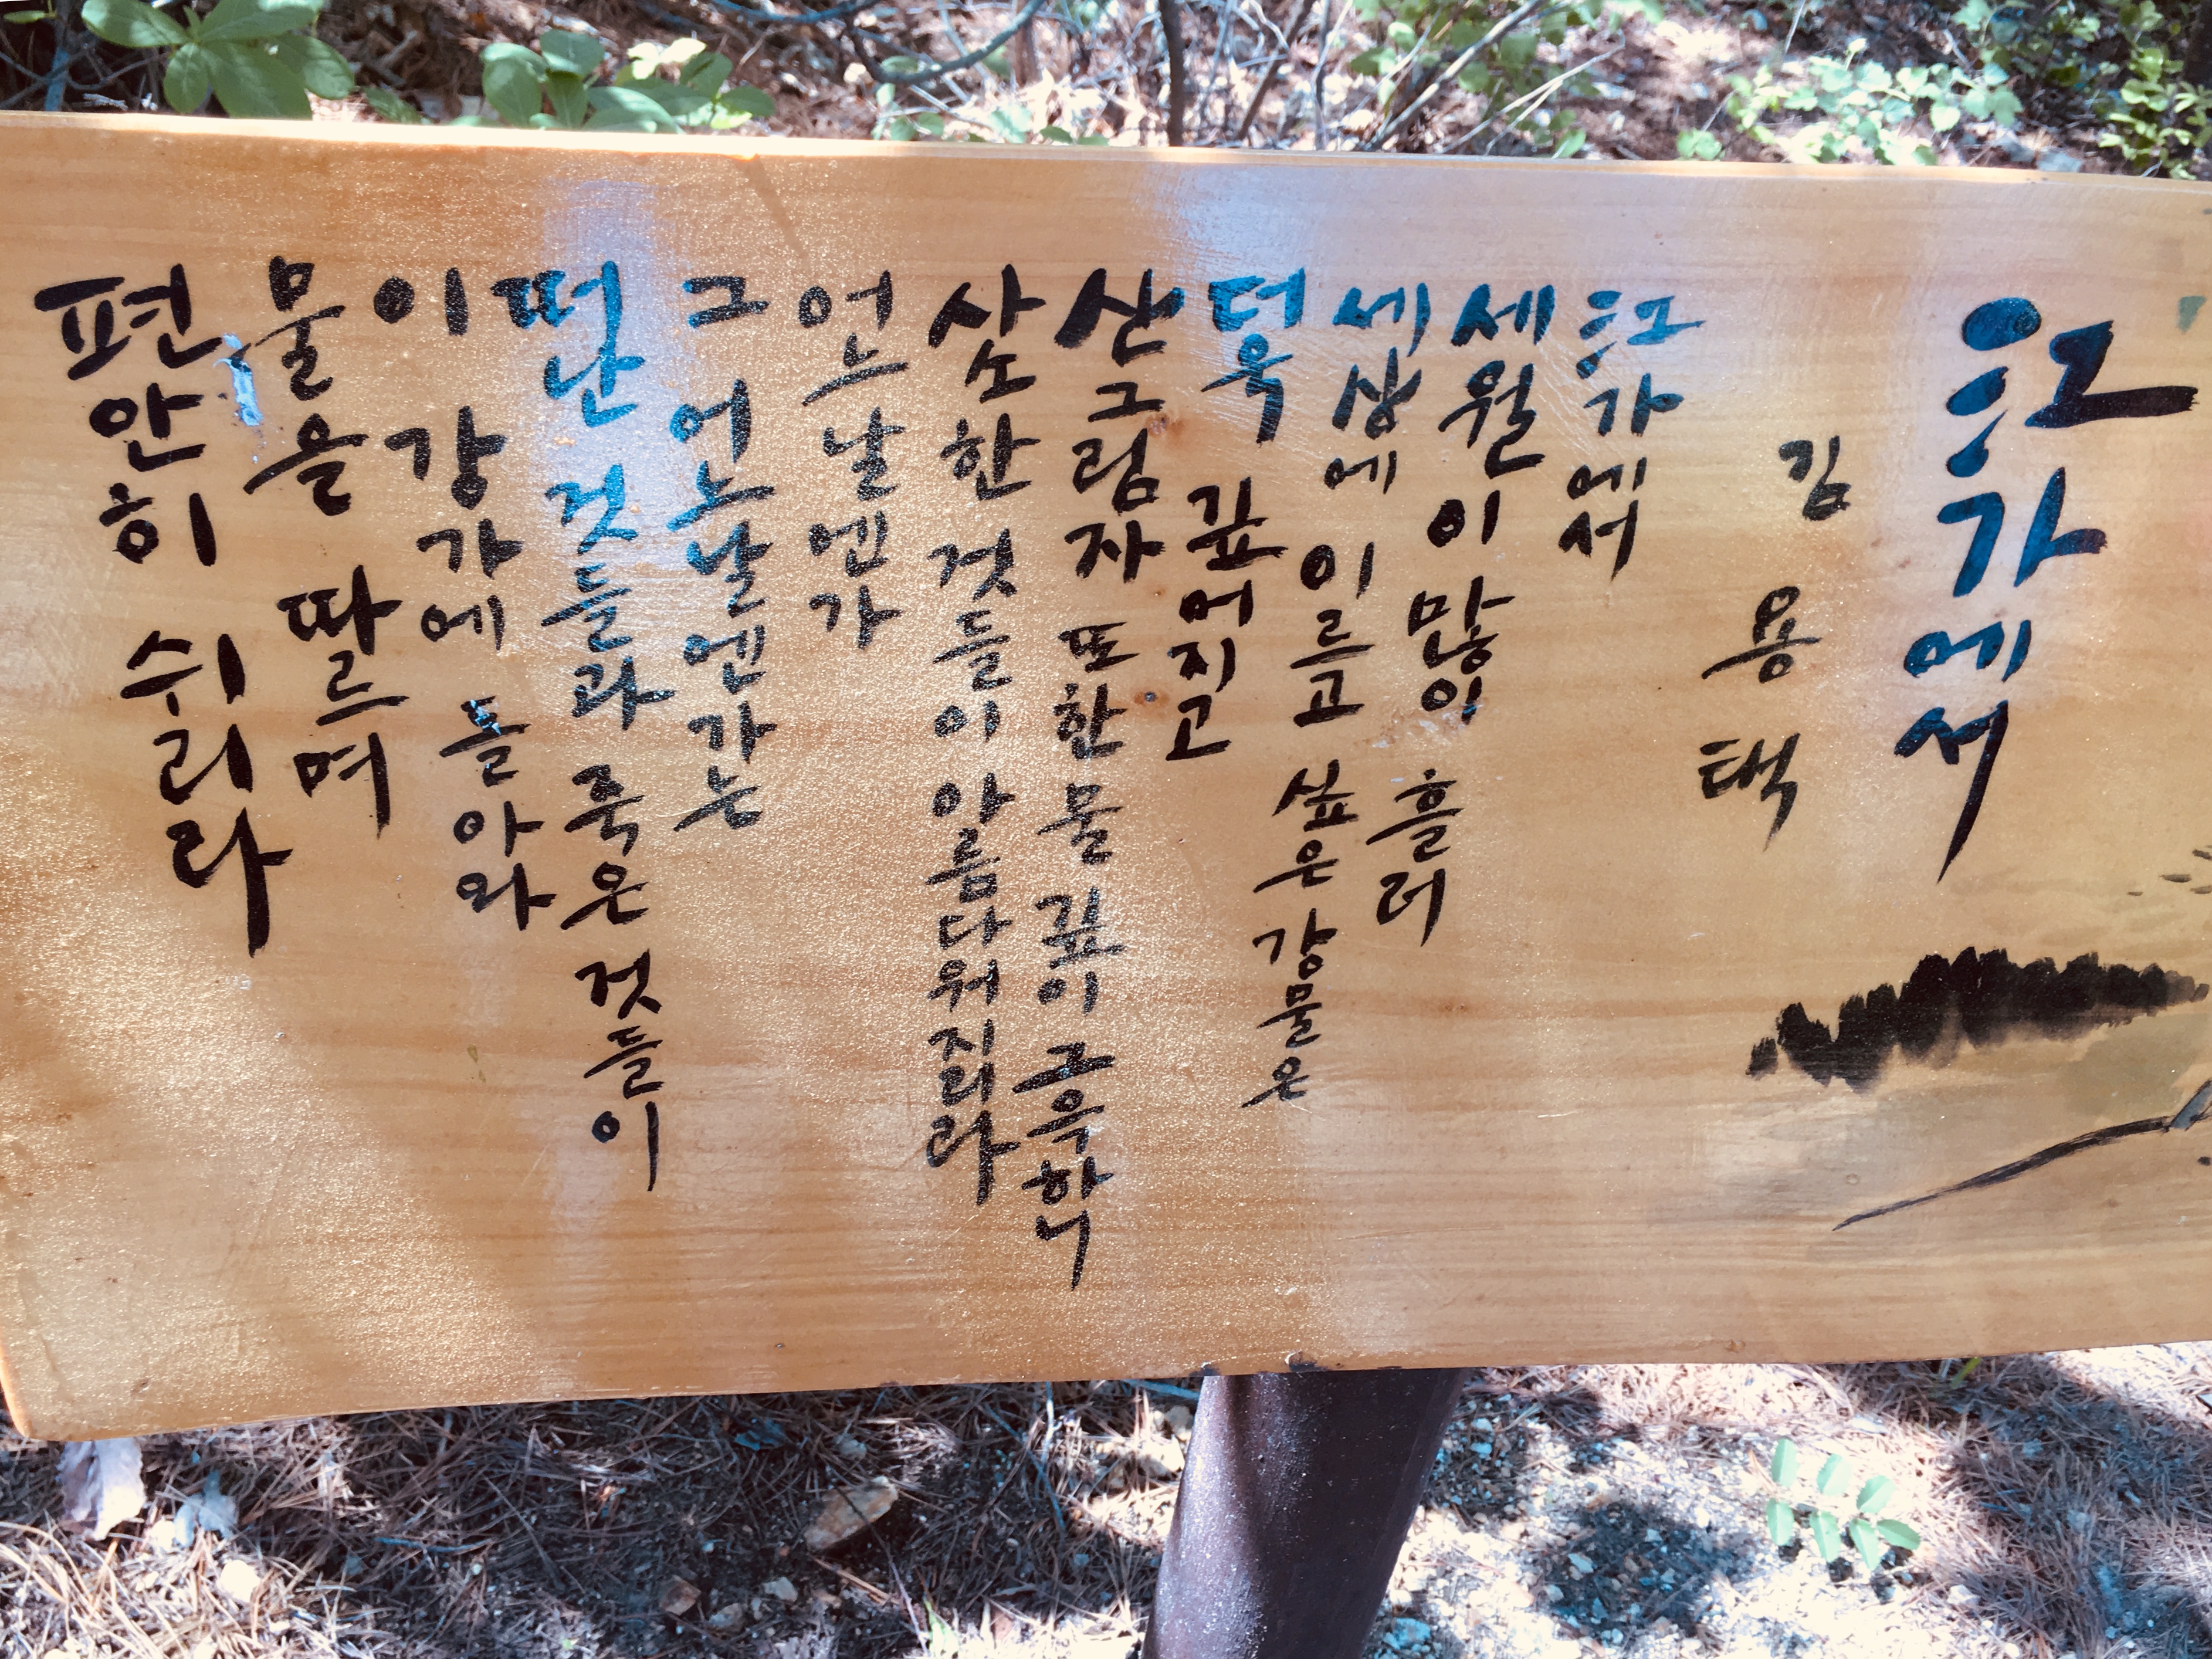 江가에서
김용택
江가에서
세월이 많이 흘러
세상에 이르고 싶은 강물은
더욱 깊어지고
산그림자 또한 물 깊이 그윽하니
사소한 것들이 아름다워지리라
어느날엔가
그 어느날엔가는
떠난 것들과 죽은 것들이
이 강가에 돌아와
물을 따르며
편안히 쉬리라